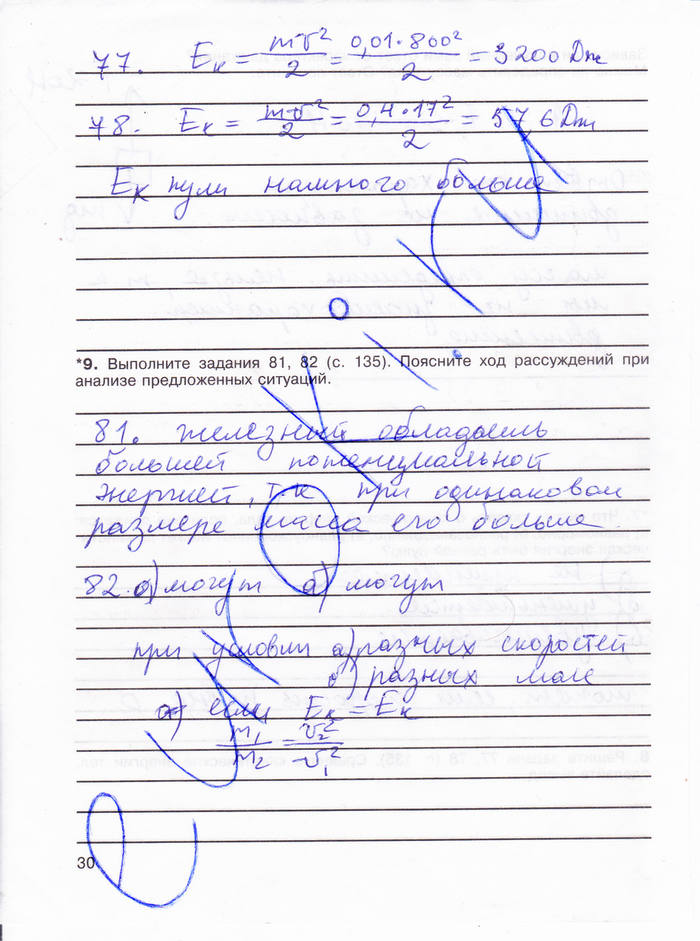 77. Eк = mv²/2 = 0,01·800²/2 = 3200 Дж
78. Eк = mv²/2 = 0,4·17²/2 = 57,6 Дж
Eк пули намного больше
*9. Выполните задания 81, 82 (с. 135). Поясните ход рассуждений при
анализе предложенных ситуаций.
81. железный обладаешь
большей потенциальной
энергией, т.к при одинаковом
размере масса его больше
82. а) могут б) могут
при условии а) разных скоростей
б) разных масс
а) если Eк = Eк
m₁/m₂ = v₂²/v₁²
30